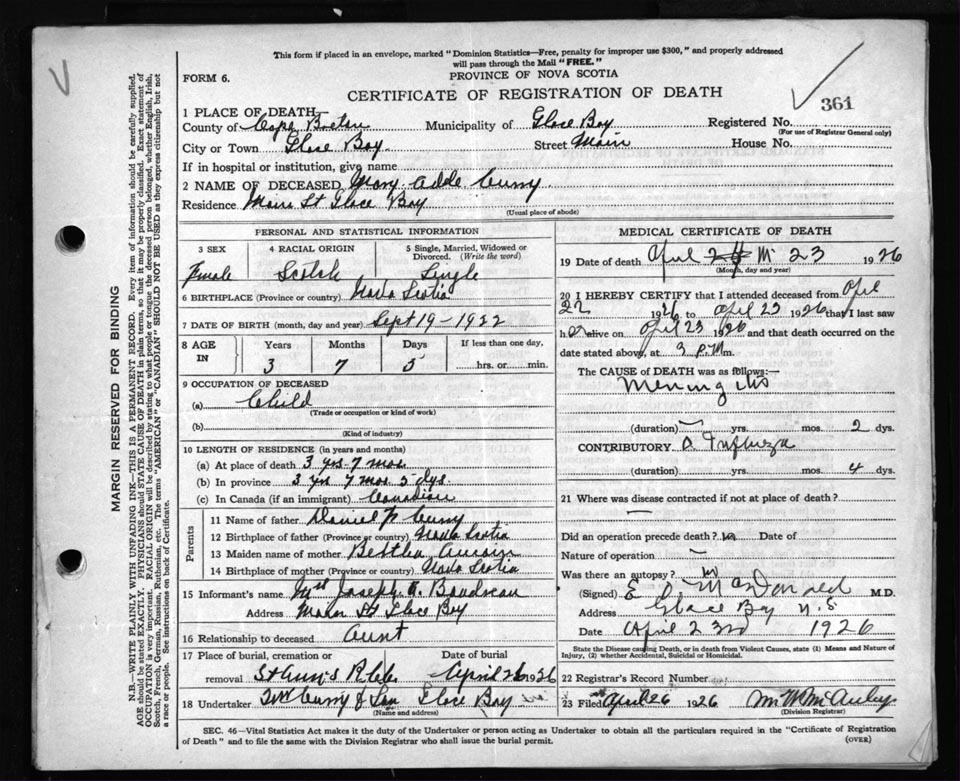 This form if placed in an envelope, marked "Dominion Statistics—Free, penalty for improper use $300," and properly addressed
will pass through the Mail "FREE."
FORM 6.
PROVINCE OF NOVA SCOTIA
CERTIFICATE OF REGISTRATION OF DEATH
361
1 PLACE OF DEATH
County of Cape Breton Municipality of Glace Bay Registered No.
(For use of Registrar General only)
City or Town Glace Bay Street Main House No.
If in hospital or institution, give name
2 NAME OF DECEASED Mary Adde Curry
Residence Main St Glace Bay
(Usual place of abode)
PERSONAL AND STATISTICAL INFORMATION
3 SEX 4 RACIAL ORIGIN 5 Single, Married, Widowed or
Divorced. (Write the word)
Female Scotch Single
6 BIRTHPLACE (Province or country) Nova Scotia
7 DATE OF BIRTH (month, day and year) Sept 19-1922
8 AGE IN Years Months Days If less than one day,
3 7 5 hrs. or min.
9 OCCUPATION OF DECEASED
(a) Child
(Trade or occupation or kind of work)
(b)
(Kind of industry)
10 LENGTH OF RESIDENCE (in years and months)
(a) At place of death 3 yrs-7 mos
(b) In province 3 yrs 7 mos 5 dys.
(c) In Canada (if an immigrant) Canadian
Parents
11 Name of father Daniel P Curry
12 Birthplace of father (Province or country) Nova Scotia
13 Maiden name of mother
14 Birthplace of mother (Province or country) Nova Scotia
15 Informant's name Mrs Joseph Boudreau
Address Glace Bay
16 Relationship to deceased Aunt
17 Place of burial, cremation or Date of burial
removal April 26 1926
18 Undertaker Curry & Son Glace Bay
(Name and address)
MEDICAL CERTIFICATE OF DEATH
19 Date of death April 24 23 1926
(Month, day and year)
20 I HEREBY CERTIFY that I attended deceased from April
22 1926 to April 23 1926 that I last saw
her alive on April 23 1926 and that death occurred on the
date stated above, at 3 P.M m.
The CAUSE OF DEATH was as follows:—
Meningitis
(duration) yrs. mos. 2 dys.
CONTRIBUTORY Influenza
(duration) yrs. mos. 4 dys.
21 Where was disease contracted if not at place of death?
—
Did an operation precede death? no Date of
Nature of operation —
Was there an autopsy? no
(Signed) E MacDonald M.D.
Address Glace Bay N.S.
Date April 23rd 1926
State the Disease causing Death, or in death from Violent Causes, state (1) Means and Nature of
Injury, (2) whether Accidental, Suicidal or Homicidal.
22 Registrar's Record Number
23 Filed April 26 1926
(Division Registrar)
SEC. 46—Vital Statistics Act makes it the duty of the Undertaker or person acting as Undertaker to obtain all the particulars required in the "Certificate of Registration
of Death" and to file the same with the Division Registrar who shall issue the burial permit.
(OVER)
MARGIN RESERVED FOR BINDING
N.B.—WRITE PLAINLY WITH UNFADING INK—THIS IS A PERMANENT RECORD. Every item of information should be carefully supplied.
AGE should be stated EXACTLY. PHYSICIANS should STATE CAUSE OF DEATH in plain terms, so that it may be properly classified. Exact statement of
OCCUPATION is very important. RACIAL ORIGIN will be described by stating to what people or tongue the deceased person belonged, whether English, Irish,
Scotch, French, German, Russian, Ruthenian, etc. The terms "AMERICAN" or "CANADIAN" SHOULD NOT BE USED as they express citizenship but not
a race or people. See instructions on back of Certificate.